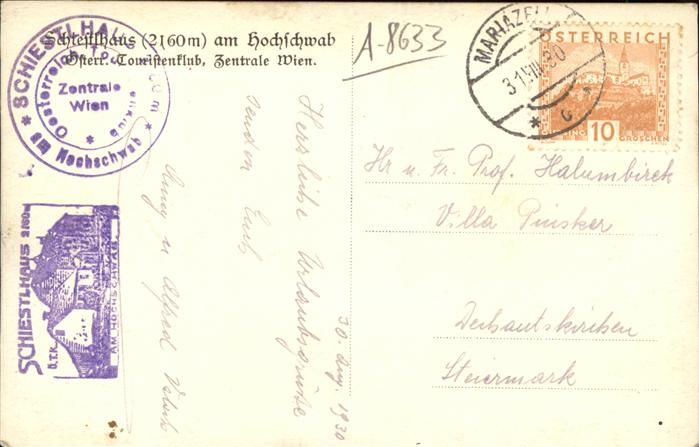 Schiestlhaus (2160 m) am Hochschwab
Österr. Touristenklub, Zentrale Wien.
A-8633
SCHIESTLHAUS
AM Hochschwab
Oesterreich.
Zentrale
Wien
SCHIESTLHAUS 2160m
Ö.T.K.
AM HOCHSCHWAB
MARIAZELL
31.VIII.30
ÖSTERREICH
10
GROSCHEN
30. Aug. 1930
Herzliche Urlaubsgrüße
senden Euch
u Alfred
Hr u. Fr. Prof. Halumbirek
Villa Pinsker
Dechantskirchen
Steiermark